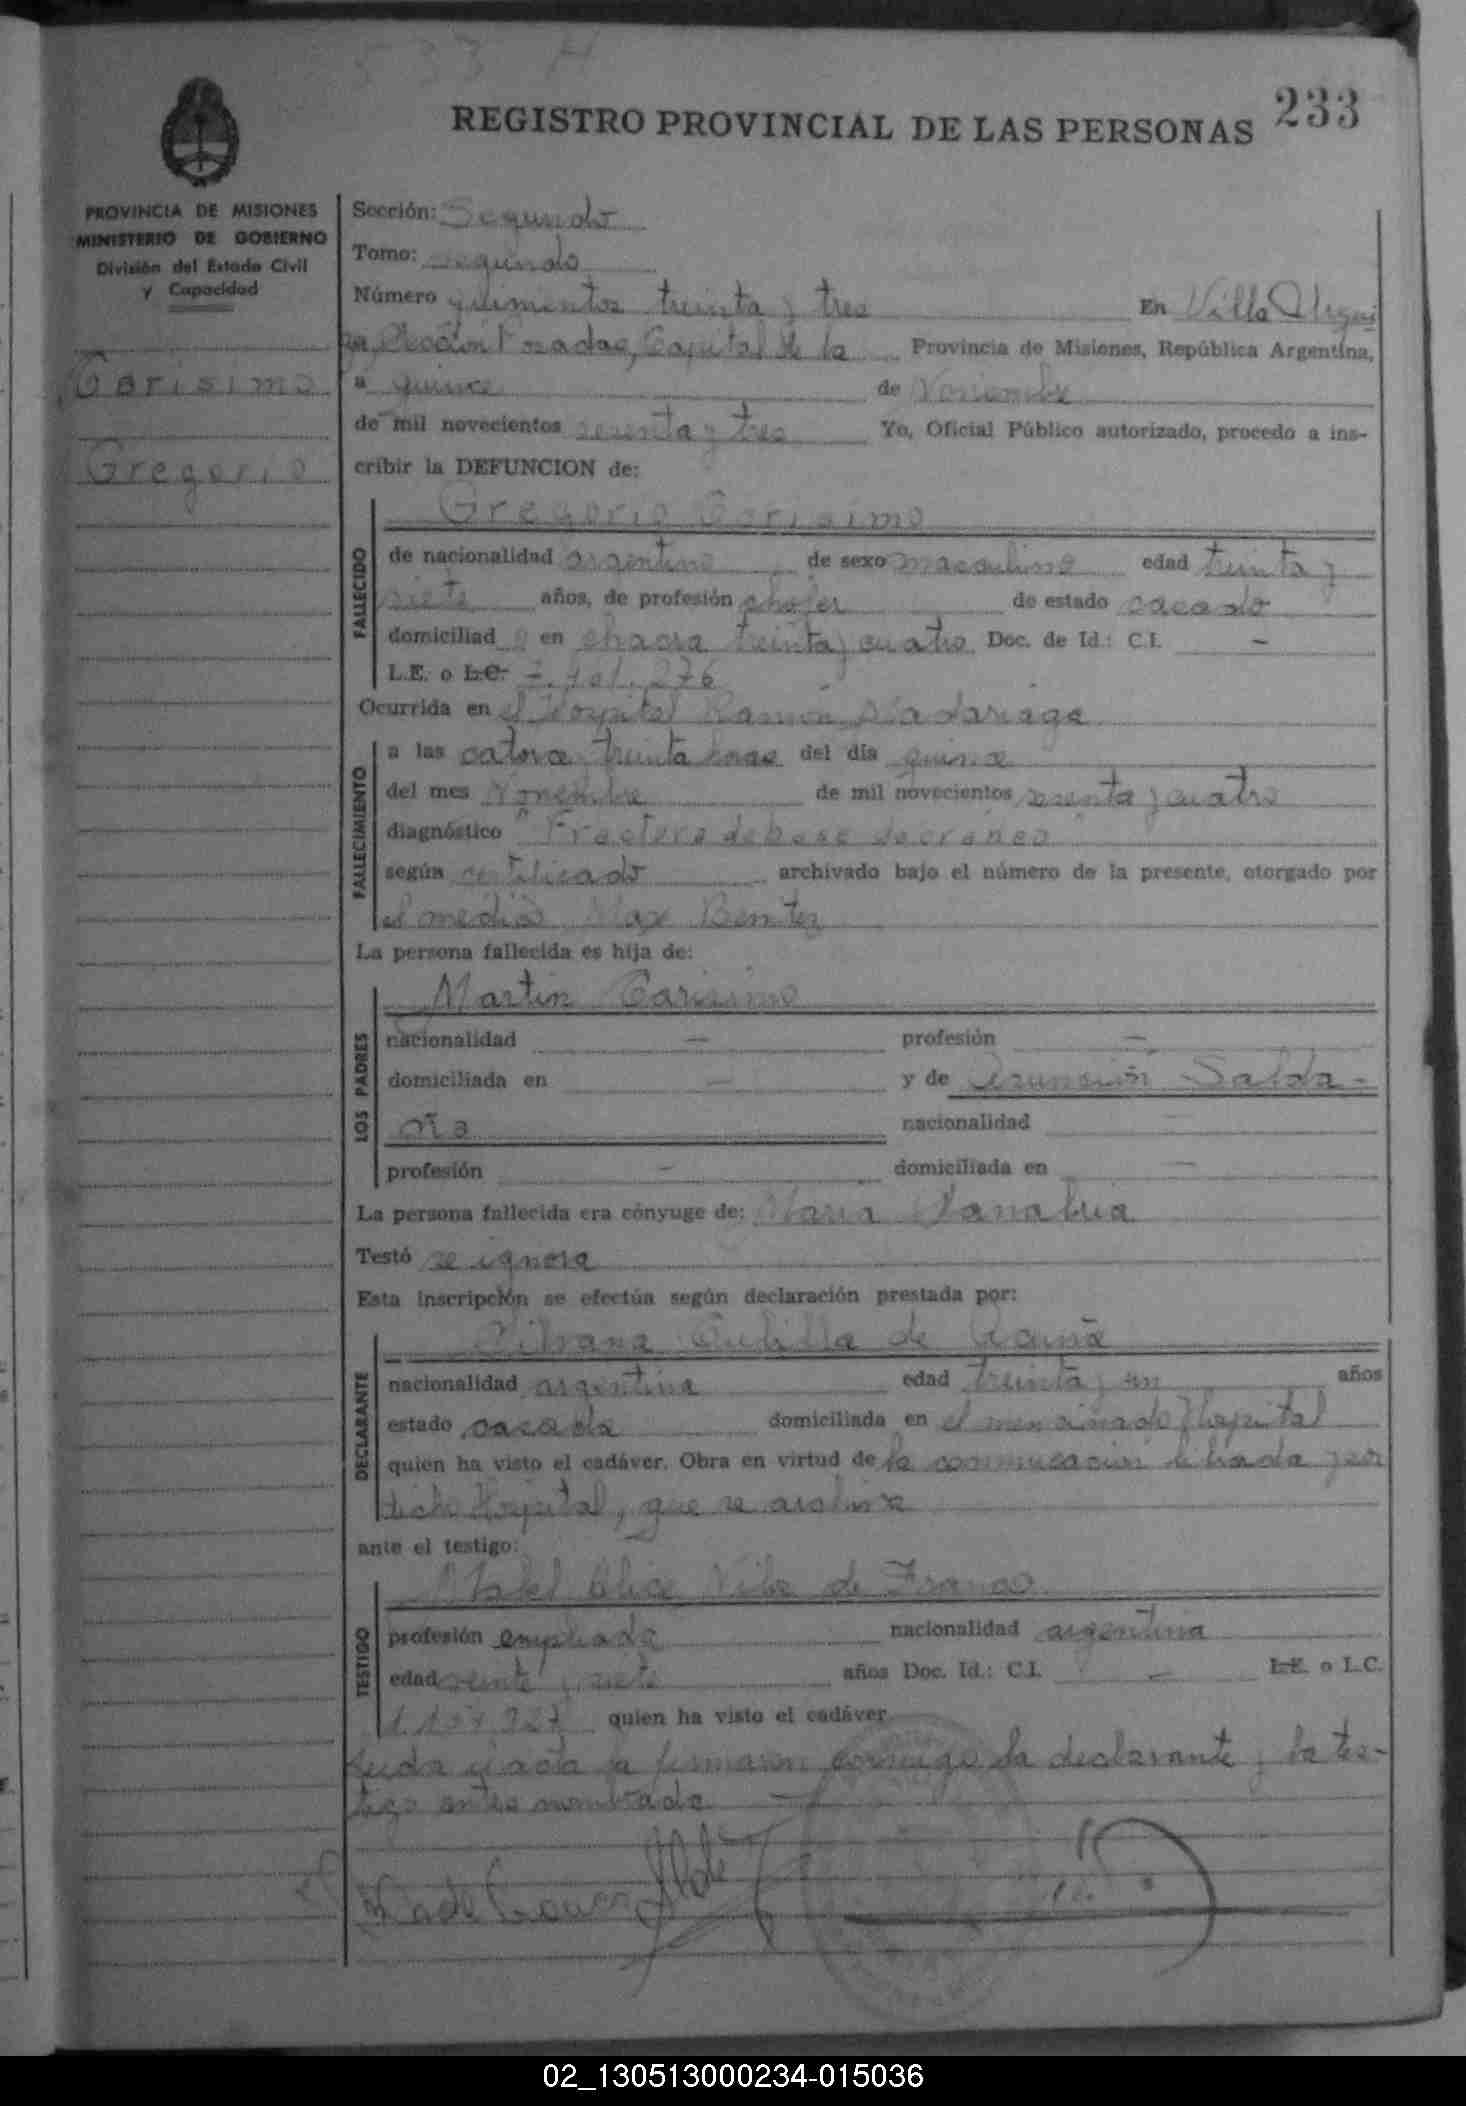 533 H
233
REGISTRO PROVINCIAL DE LAS PERSONAS
PROVINCIA DE MISIONES
MINISTERIO DE GOBIERNO
División del Estado Civil
y Capacidad
Carisimo
Gregorio
Sección: Segundo
Tomo: segundo
Número quinientos treinta y tres En Villa Urqui
za, Sección Posadas, Capital de la Provincia de Misiones, República Argentina,
a quince de Noviembre
de mil novecientos sesenta y tres Yo, Oficial Público autorizado, procedo a ins-
cribir la DEFUNCION de:
FALLECIDO
Gregorio Carisimo
de nacionalidad argentino de sexo masculino edad treinta y
siete años, de profesión chofer de estado casado
domiciliad o en chacra treinta y cuatro Doc. de Id.: C.I. -
L.E. o L.C. 276
Ocurrida en el Hospital Ramón Madariaga
FALLECIMIENTO
a las catorce, treinta horas del día quince
del mes Noviembre de mil novecientos sesenta y cuatro
diagnóstico "Fractura de base de craneo"
según certificado archivado bajo el número de la presente, otorgado por
el médico Max Benitez
La persona fallecida es hija de:
LOS PADRES
Martin Carisimo
nacionalidad - profesión -
domiciliada en - y de Asunción Salda-
ña nacionalidad -
profesión - domiciliada en -
La persona fallecida era cónyuge de: María Sanabria
Testó se ignora
Esta inscripción se efectúa según declaración prestada por:
DECLARANTE
de Acuña
nacionalidad argentina edad treinta y un años
estado casada domiciliada en el mencionado Hospital
quien ha visto el cadáver. Obra en virtud de la comunicación librada por
dicho Hospital, que se archiva
ante el testigo:
TESTIGO
Mabel Alice de Franco
profesión empleada nacionalidad argentina
edad veinte y siete años Doc. Id.: C.I. - L.E. o L.C.
quien ha visto el cadáver
Leida el acta la firmaron conmigo la declarante y la tes-
tigo antes nombrada
02_130513000234-015036